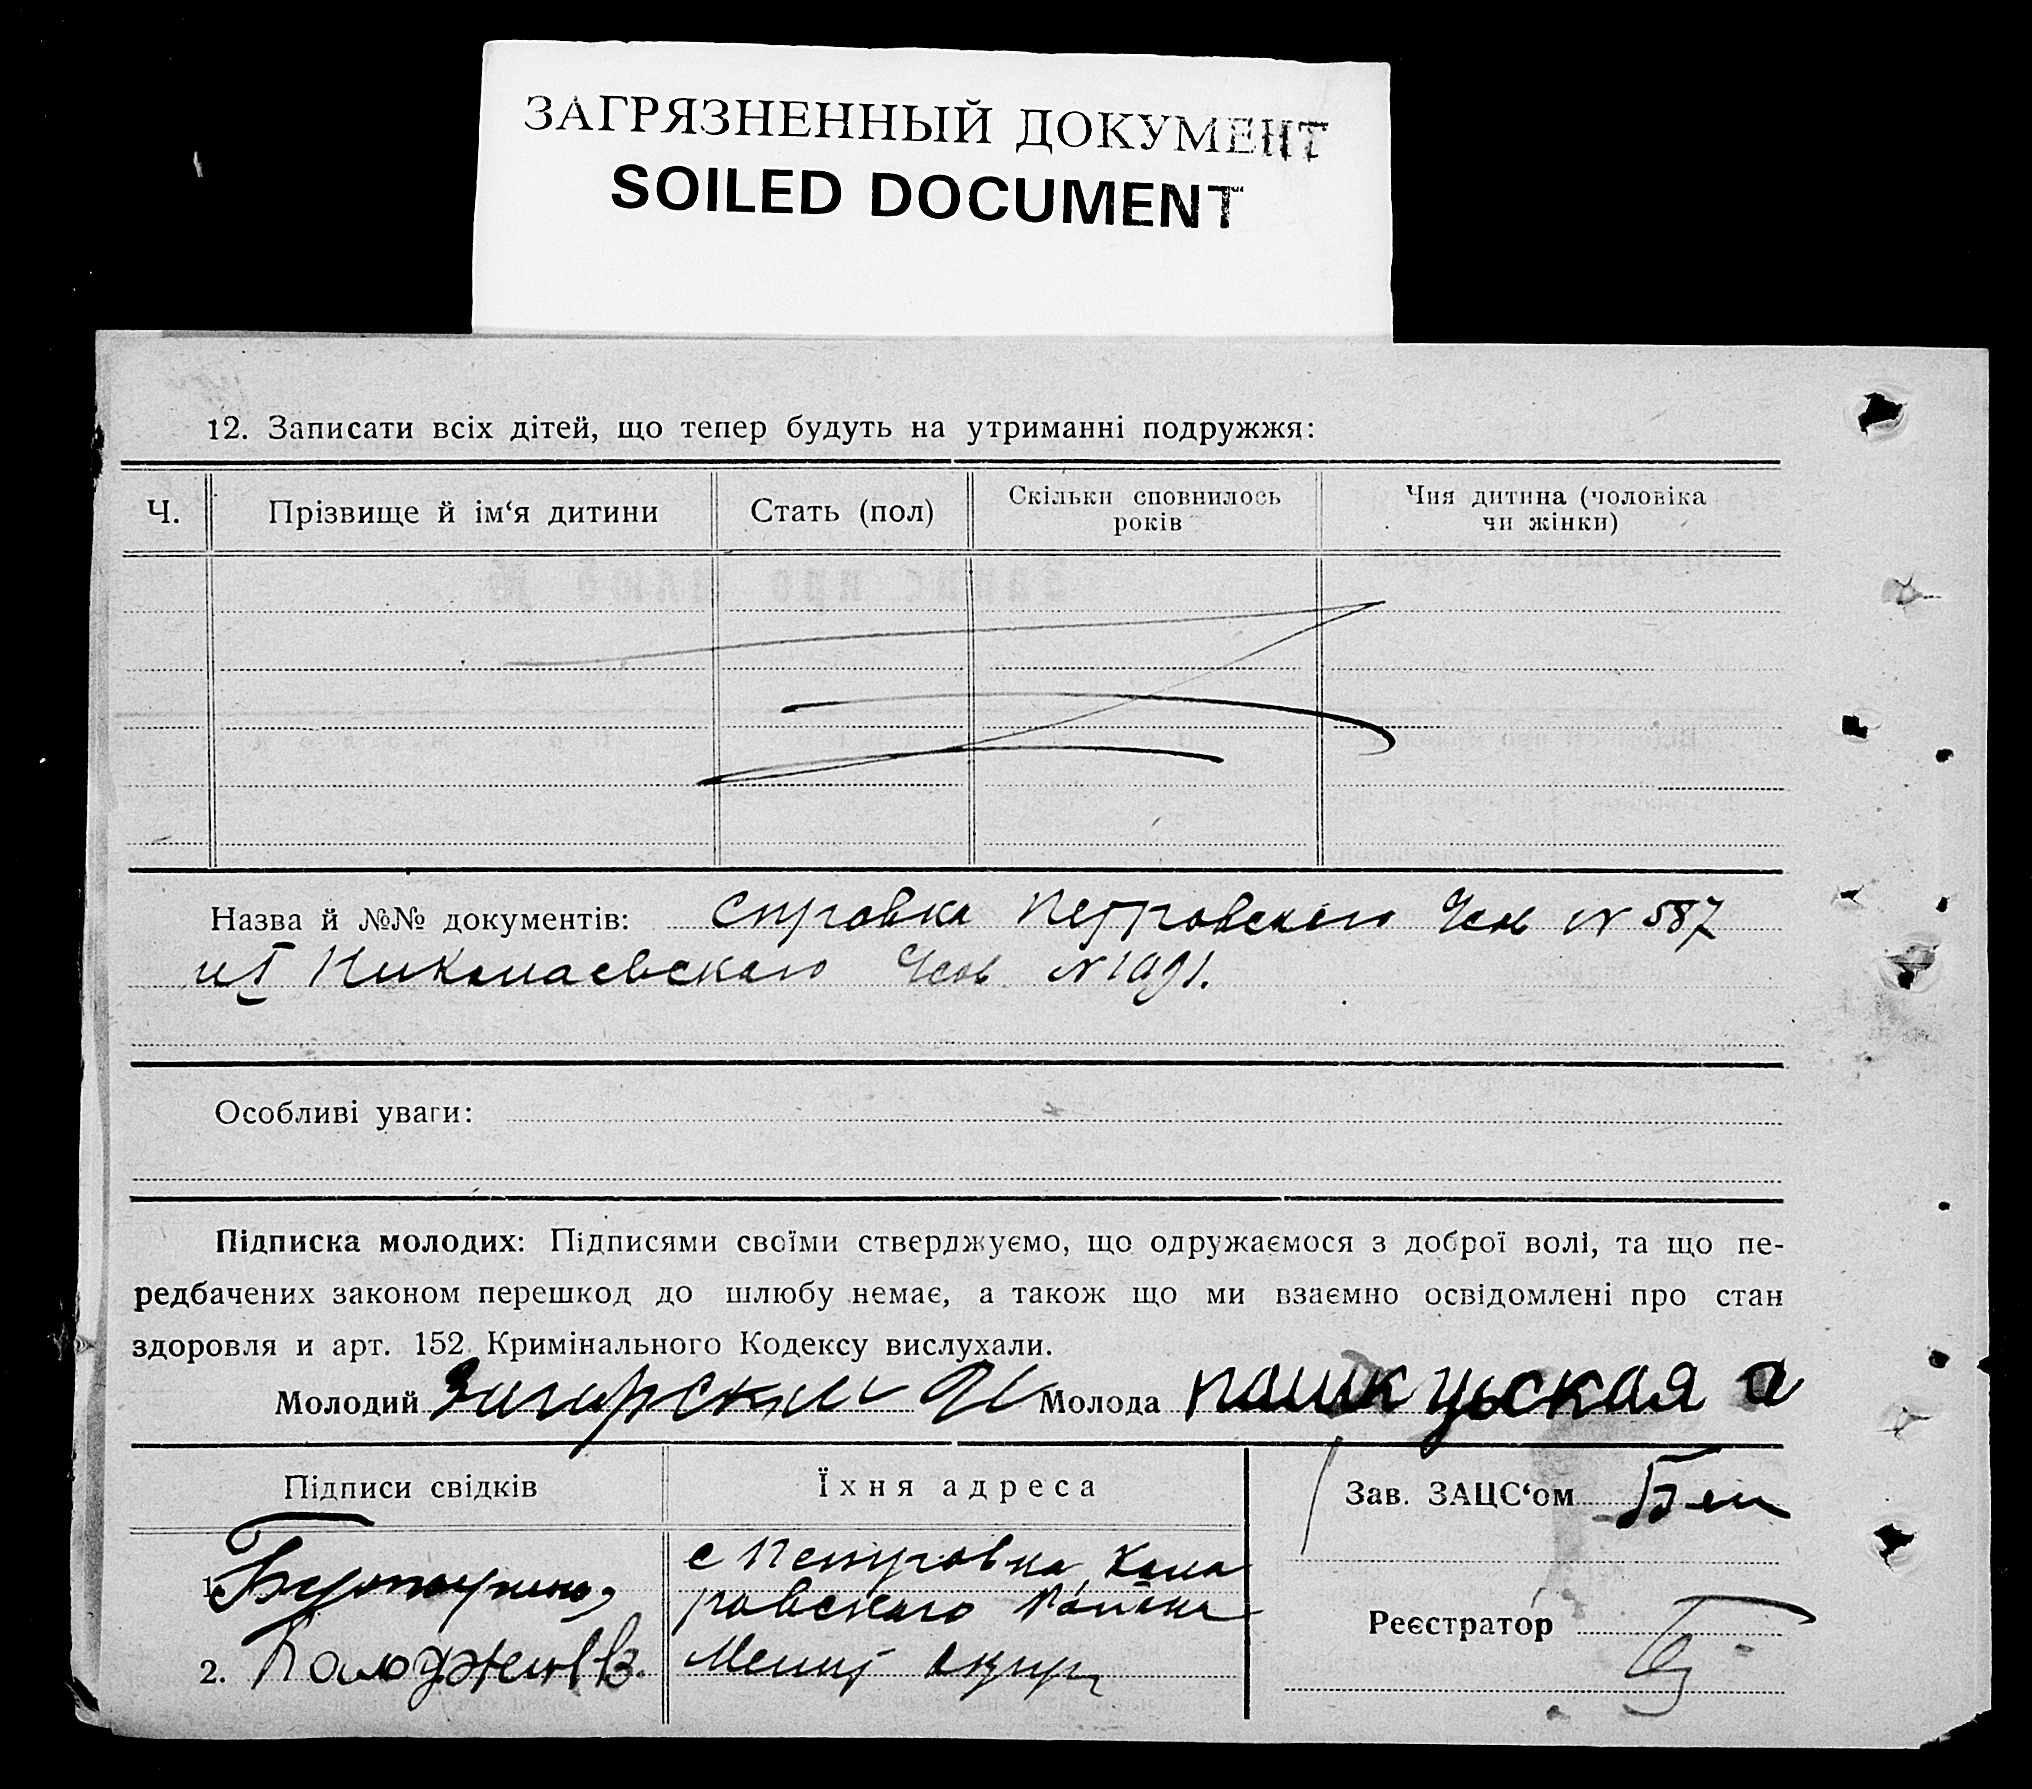 ЗАГРЯЗНЕННЫЙ ДОКУМЕНТ
SOILED DOCUMENT
12. Записати всіх дітей, що тепер будуть на утриманні подружжя:
Ч. Прізвище й ім‘я дитини Стать (пол) Скільки сповнилось років Чия дитина (чоловіка чи жінки)
Назва й №№ документів: Справка Петровского N 587
Николаевского N 1091.
Особливі уваги:
Підписка молодих: Підписями своїми стверджуємо, що одружаємося з доброї волі, та що пе-
редбачених законом перешкод до шлюбу немає, а також що ми взаємно освідомлені про стан
здоровля и арт. 152 Кримінального Кодексу вислухали.
Молодий Загорский Молода Пашкульская а
Підписи свідків Їхня адреса Зав. ЗАЦС‘ом
1. с Петровка
ровского Района Реєстратор
2.